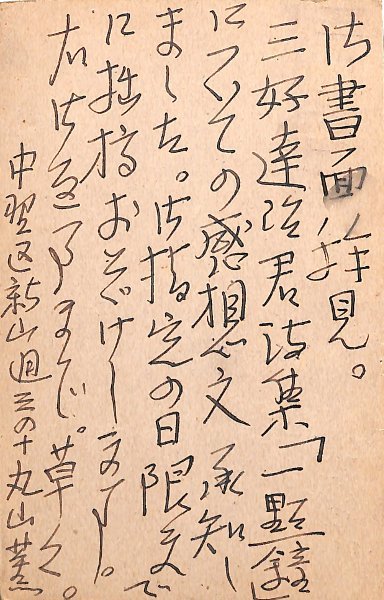 御書面拝見。
三好達治君詩集「一點鐘」
についての感想文承知し
ました。御指定の日限まで
に拙稿おとゞけします。
右御返事まで。草々。
中野区新山通三の十 丸山薫